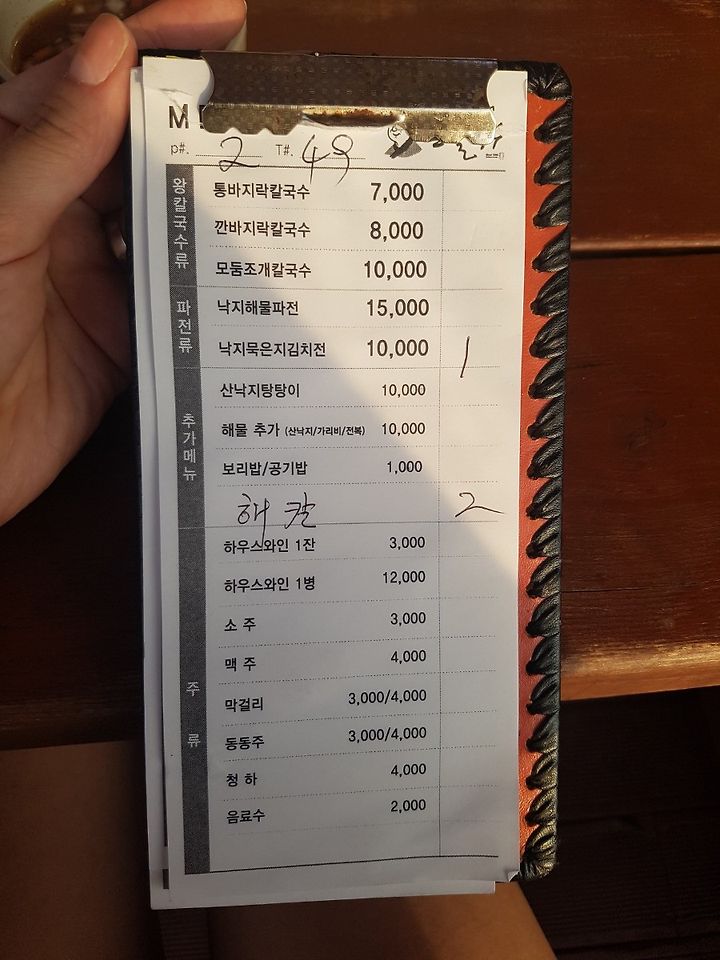 p#. 2 T#. 49
왕칼국수류
통바지락칼국수 7,000
깐바지락칼국수 8,000
모둠조개칼국수 10,000
파전류
낙지해물파전 15,000
낙지묵은지김치전 10,000 1
추가메뉴
산낙지탕탕이 10,000
해물 추가 (산낙지/가리비/전복) 10,000
보리밥/공기밥 1,000
해칼 2
주류
하우스와인 1잔 3,000
하우스와인 1병 12,000
소 주 3,000
맥 주 4,000
막걸리 3,000/4,000
동동주 3,000/4,000
청 하 4,000
음료수 2,000